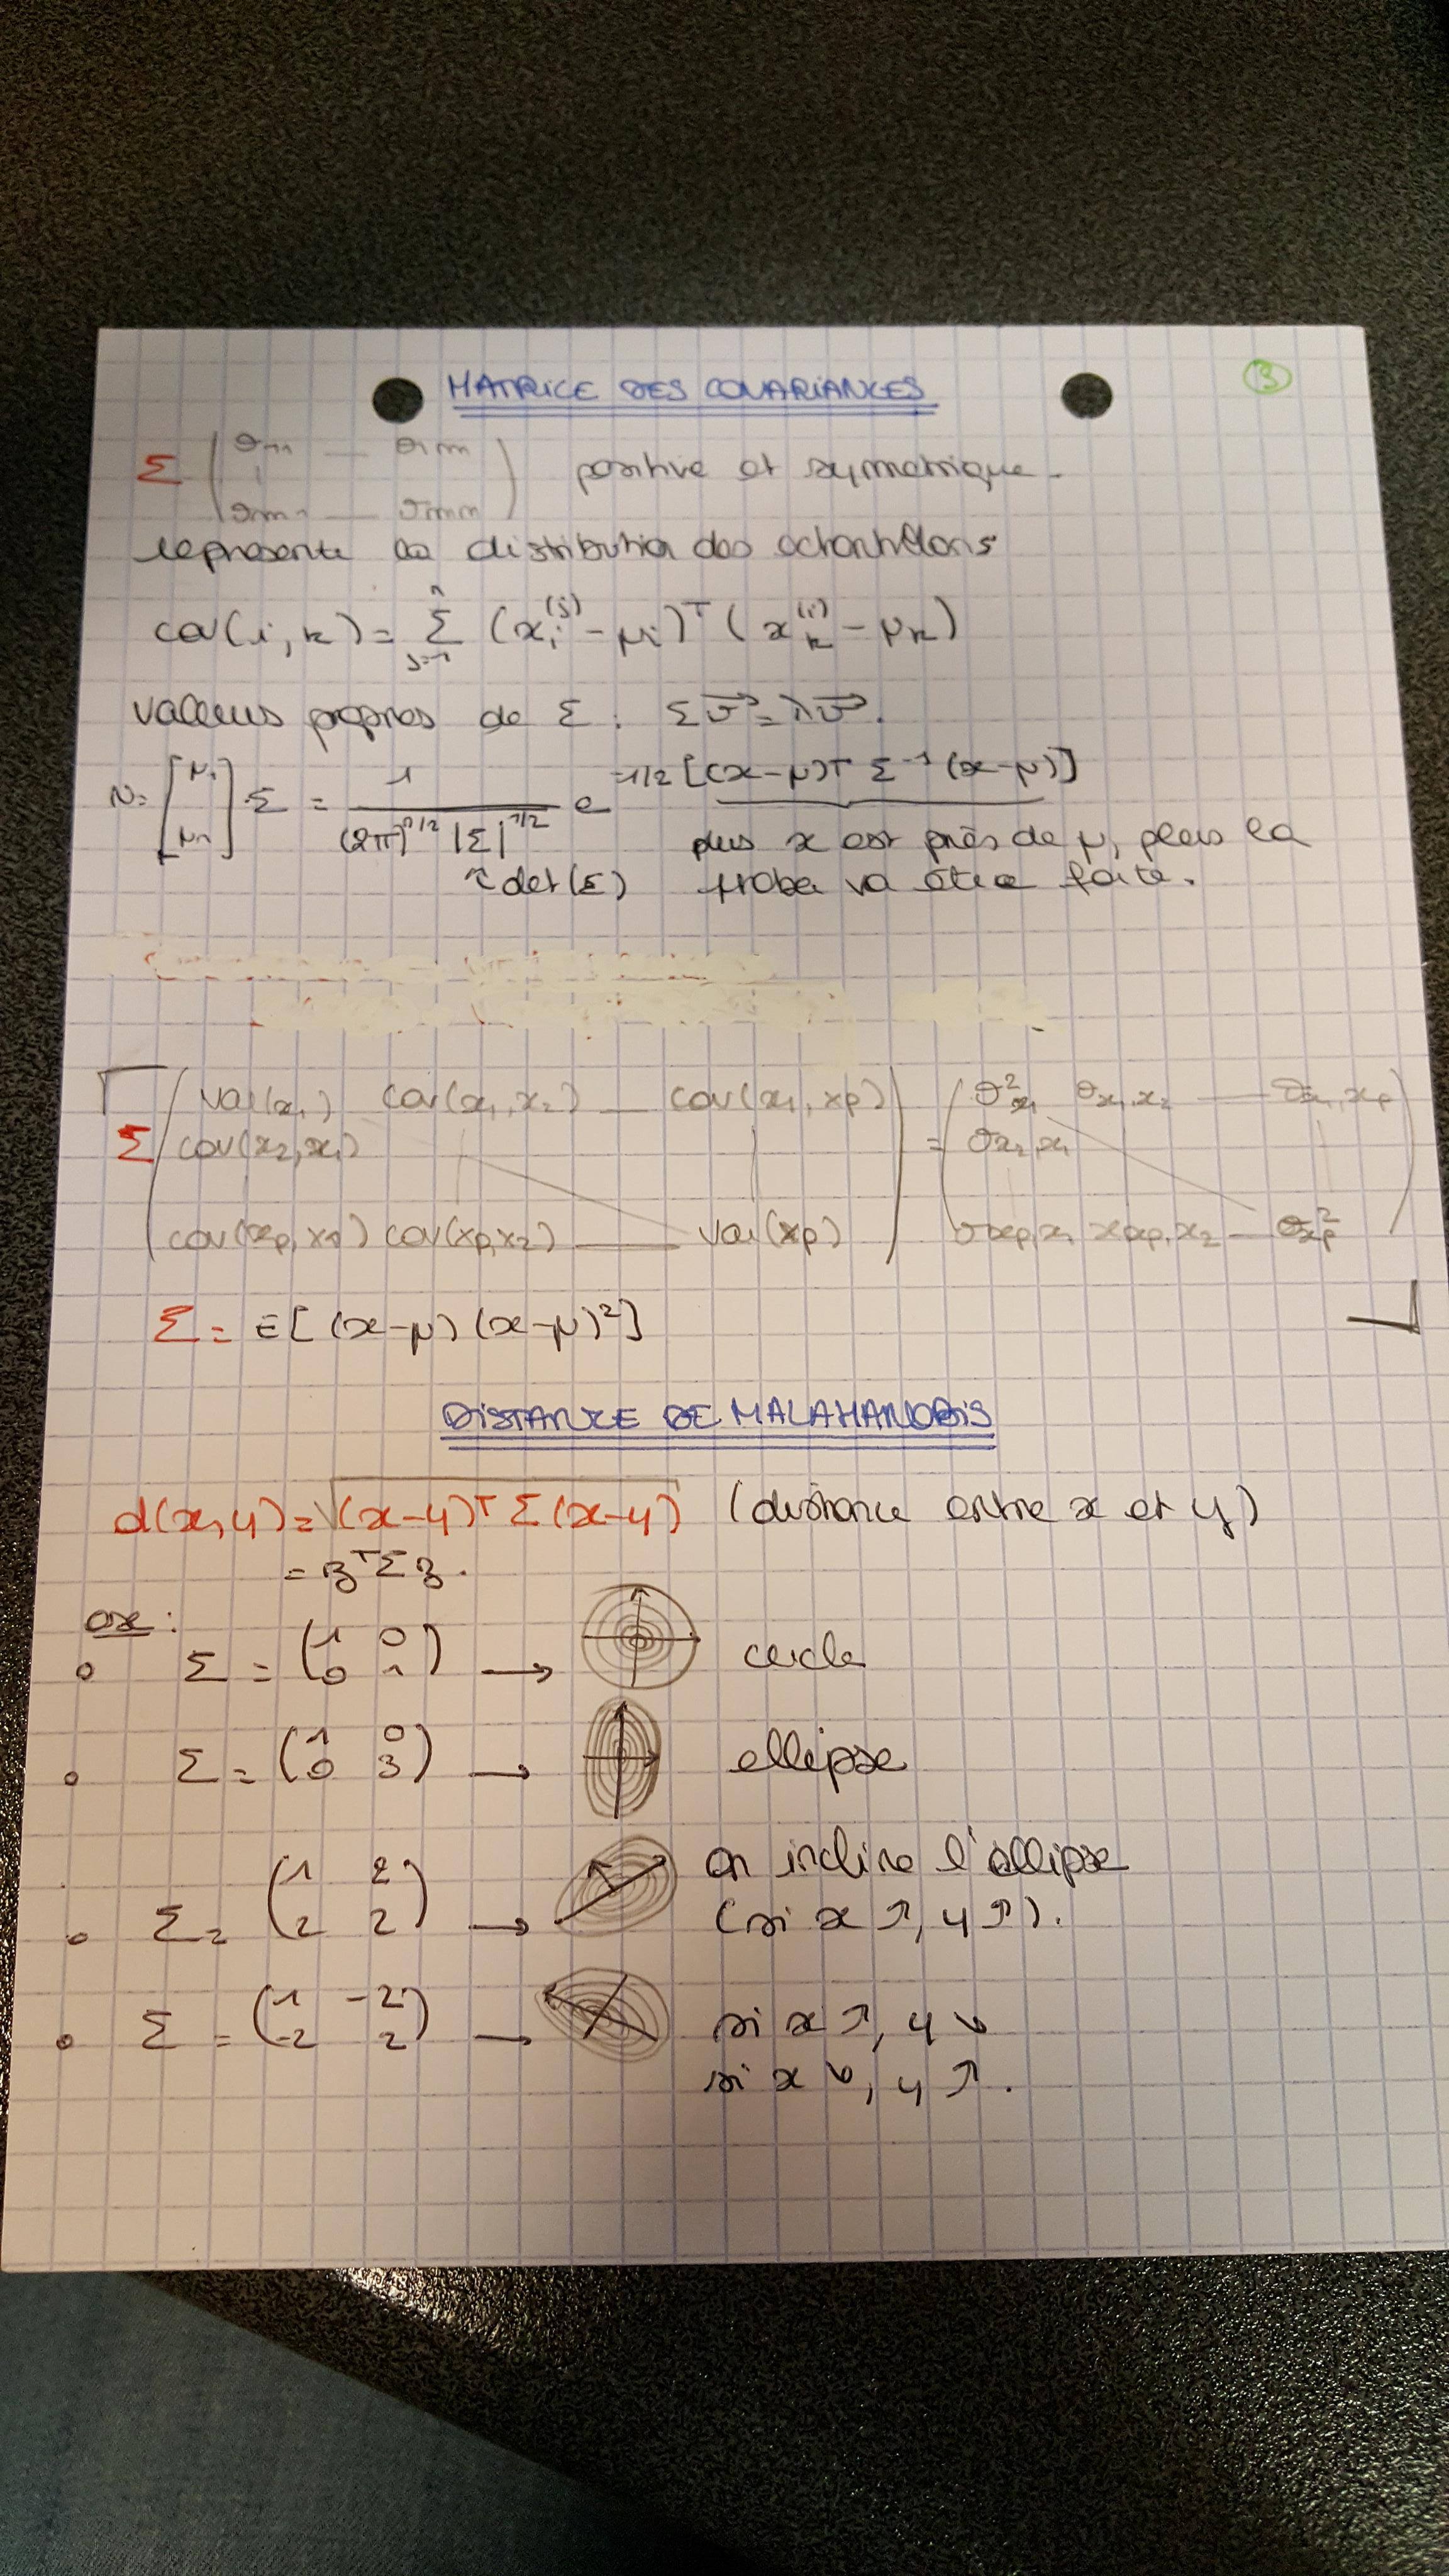 MATRICE DES COVARIANCES
13
Σ ( σ11 — σ1m
σm1 — σmm ) positive et symmetrique.
represente la distribution des echantillons
cov(i,k) = Σ j=1 n (xi(j) - μi)ᵀ (xk(j) - μk)
valeurs propres de Σ : Σv⃗ = λv⃗.
N = [μ1 μn] . Σ = 1 / ((2π)^n/2 |Σ|^1/2) e^-1/2 [(x-μ)ᵀ Σ⁻¹ (x-μ)]
plus x est près de μ, plus la
↖ det(Σ) proba va être forte.
Σ ( var(x1) cov(x1,x2) — cov(x1,xp) ) = ( σ²x1 σx1,x2 — σx1,xp
cov(x2,x1) σx2,x1
cov(xp,x1) cov(xp,x2) — var(xp) σxp,x1 xxp,x2 — σ²xp )
Σ = E[(x-μ)(x-μ)²]
DISTANCE DE MALAHANOBIS
d(x,y) = √(x-y)ᵀ Σ (x-y) (distance entre x et y)
= zᵀΣz.
ex :
Σ = (1 0 0 1) → cercle
Σ = (1 0 0 3) → ellipse
Σ = (1 2 2 2) → on incline l'ellipse
(si x ↗, y ↗).
Σ = (1 -2 -2 2) → si x ↗, y ↘
si x ↘, y ↗.